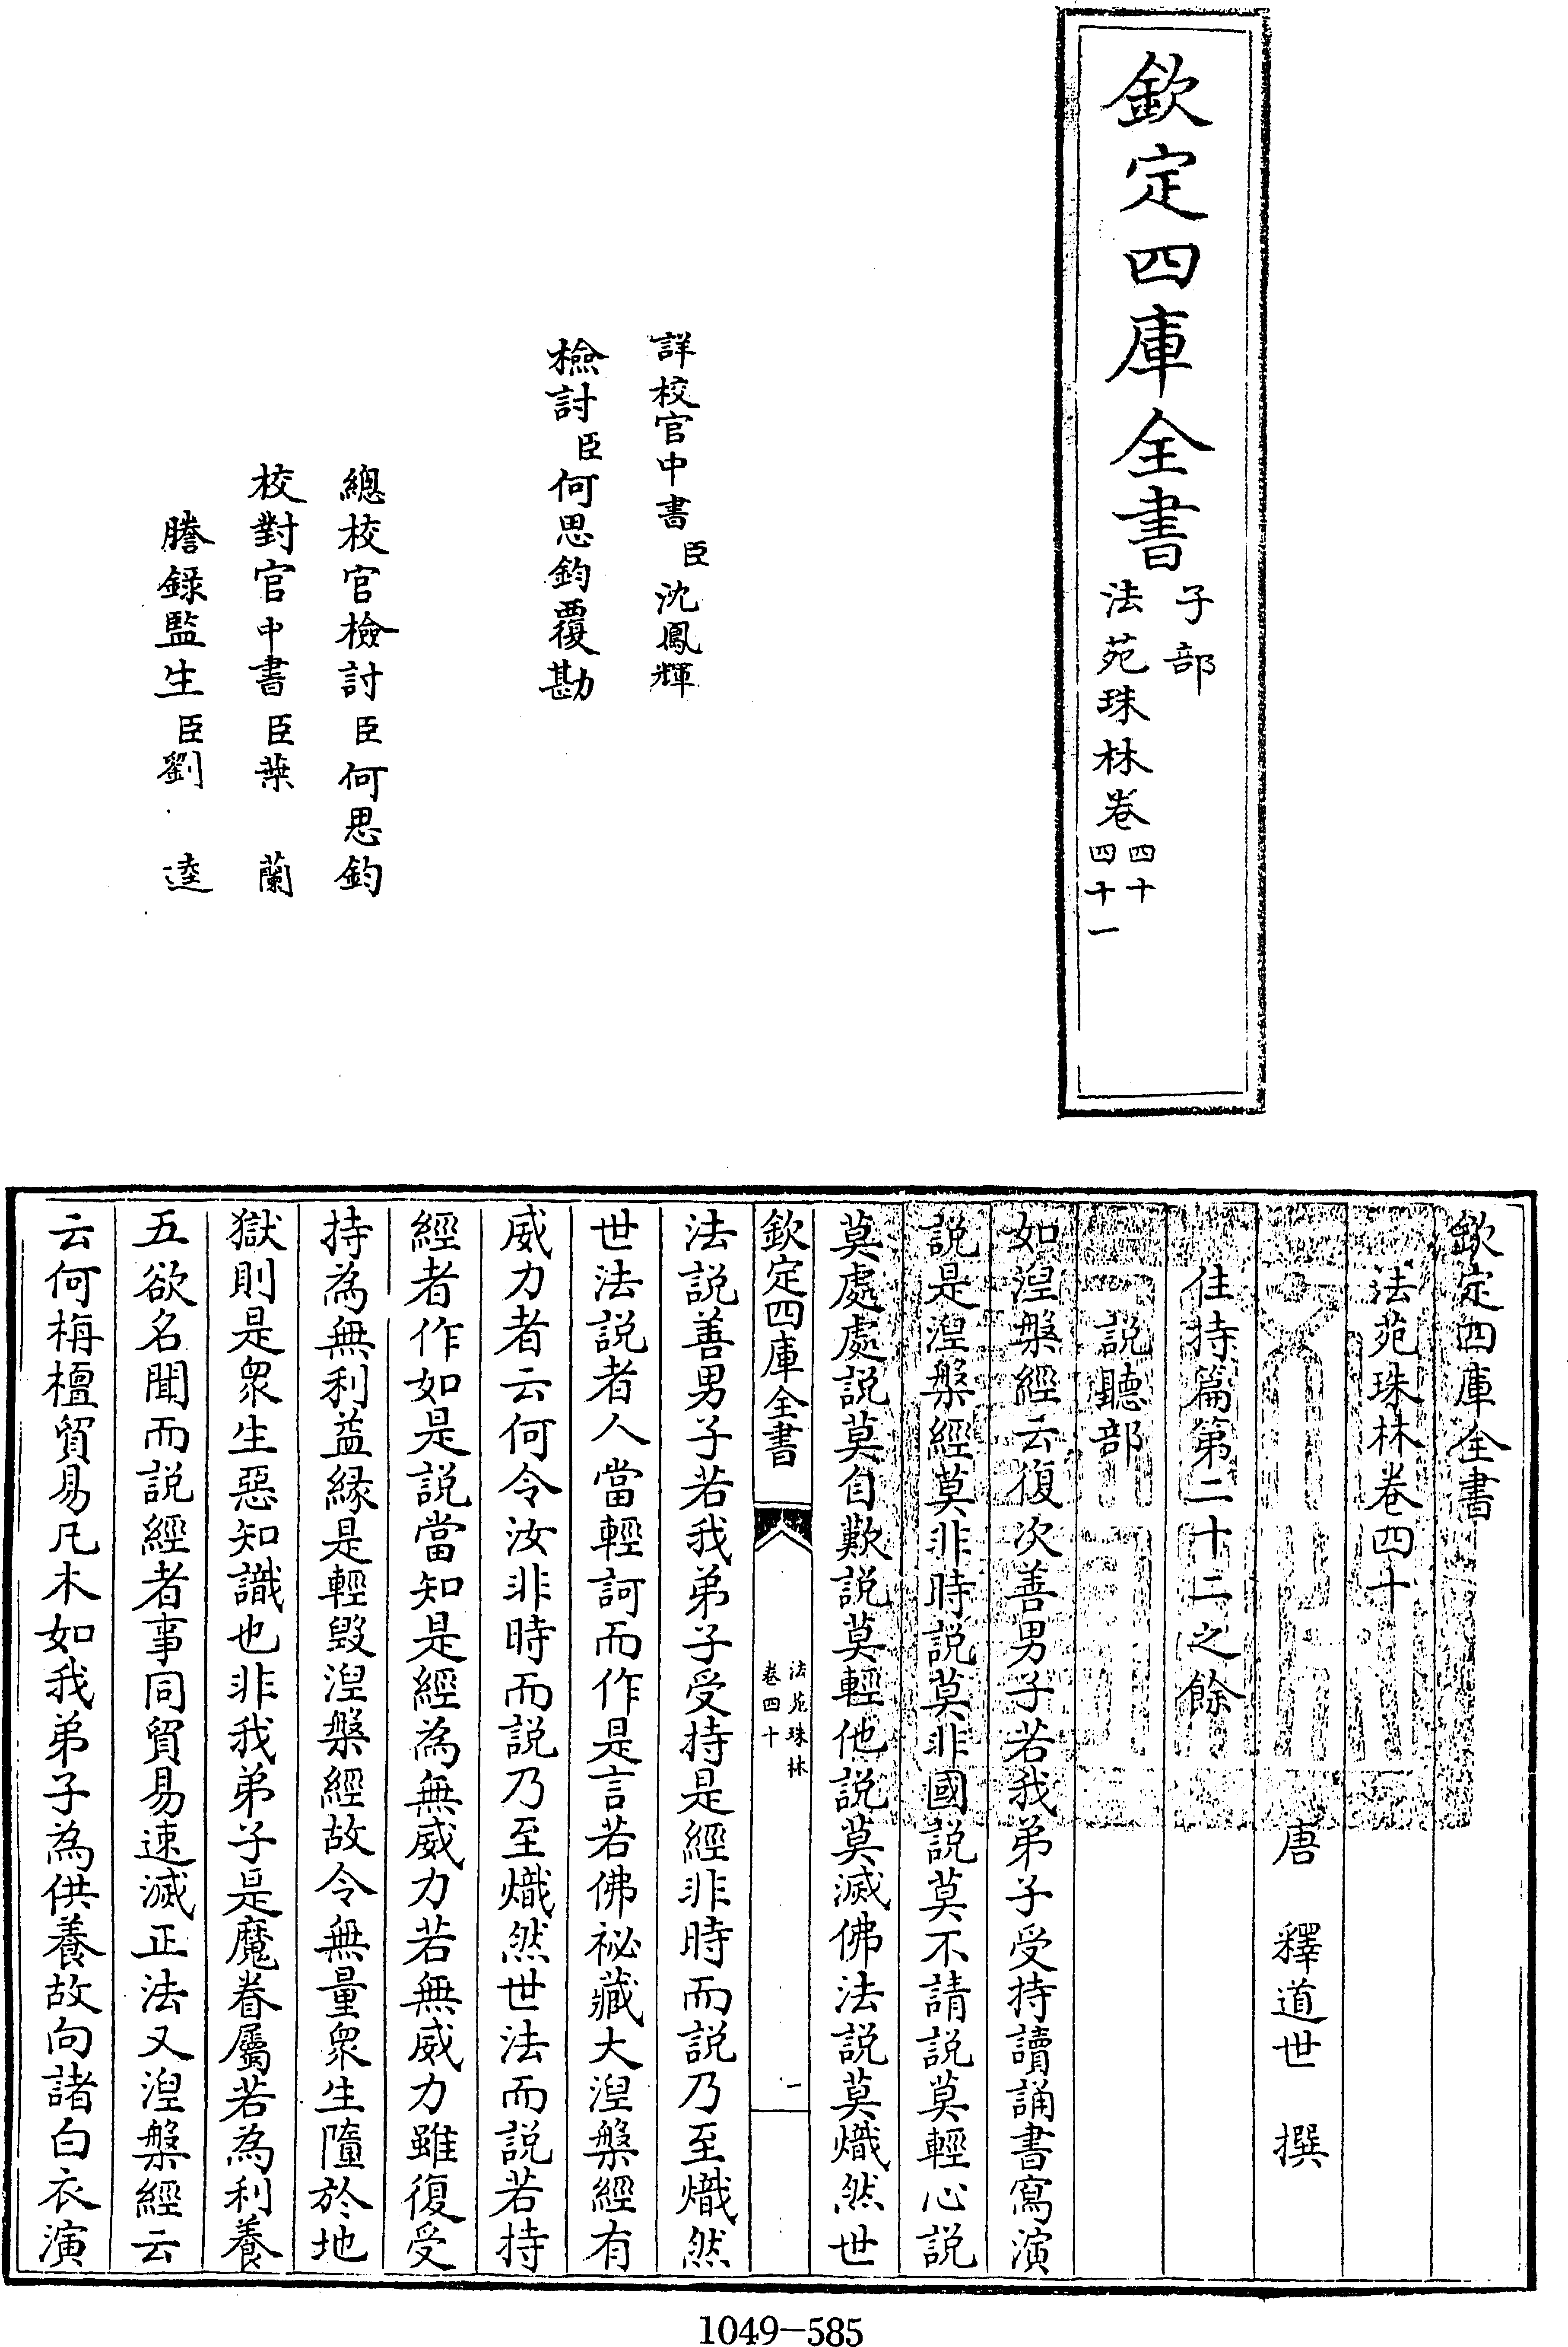 欽定四庫全書
子部
法苑珠林卷
四十
四十一
詳校官中書臣沈鳳輝
檢討臣何思鈞覆勘
總校官檢討臣何思鈞
校對官中書臣葉蘭
謄録監生臣劉逵
欽定四庫全書
法苑珠林卷四十
唐 釋道世 撰
住持篇第二十二之餘
說聽部
如湼槃經云復次善男子若我弟子受持讀誦書寫演
說是湼槃經莫非時說莫非國說莫不請說莫輕心說
莫處處說莫自歎說莫輕他說莫滅佛法說莫熾然世
欽定四庫全書
法苑珠林
卷四十
一
法說善男子若我弟子受持是經非時而說乃至熾然
世法說者人當輕訶而作是言若佛祕藏大湼槃經有
威力者云何令汝非時而說乃至熾然世法而說若持
經者作如是說當知是經為無威力若無威力雖復受
持為無利益緣是輕毀湼槃經故令無量衆生墮於地
獄則是衆生惡知識也非我弟子是魔眷屬若為利養
五欲名聞而說經者事同貿易速滅正法又湼槃經云
云何栴檀貿易凡木如我弟子為供養故向諸白衣演
1049-585